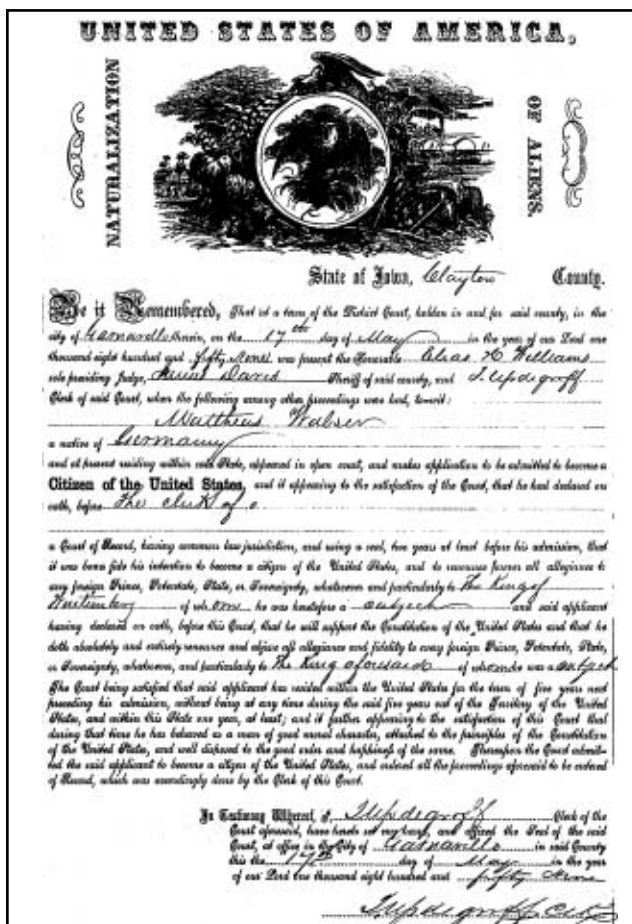 UNITED STATES OF AMERICA,
NATURALIZATION
OF ALIENS.
State of Iowa, Clayton County.
Be it Remembered, That at a term of the District Court, holden in and for said county, in the
city of Garnavillo therein, on the 17th day of May in the year of our Lord one
thousand eight hundred and fifty Nine was present the Honorable Elias H Williams
sole presiding Judge, Davis Sheriff of said county, and J. Updegroff
Clerk of said Court, when the following among other proceedings was had, towit:
Mattheus Walser
a native of Germany
and at present residing within said State, appeared in open court, and makes application to be admitted to become a
Citizen of the United States, and it appearing to the satisfaction of the Court, that he had declared on
oath, before The clerk of
a Court of Record, having common law jurisdiction, and using a seal, two years at least before his admission, that
it was bona fide his intention to become a citizen of the United States, and to renounce forever all allegiance to
any foreign Prince, Potentate, State, or Sovereignty, whatever and particularly to The King of
Wurtemberg of whom he was heretofore a subject and said applicant
having declared on oath, before this Court, that he will support the Constitution of the United States and that he
doth absolutely and entirely renounce and abjure all allegiance and fidelity to every foreign Prince, Potentate, State,
or Sovereignty, whatever, and particularly to The King aforesaid of whom he was a subject
The Court being satisfied that said applicant has resided within the United States for the term of five years next
preceding his admission, without being at any time during the said five years out of the Territory of the United
States, and within this State one year, at least; and it further appearing to the satisfaction of this Court that
during that time he has behaved as a man of good moral character, attached to the principles of the Constitution
of the United States, and well disposed to the good order and happiness of the same. Thereupon the Court admit-
ted the said applicant to become a citizen of the United States, and ordered all the proceedings aforesaid to be entered
of Record, which was accordingly done by the Clerk of this Court.
In Testimony Whereof, I, J Updegroff Clerk of the
Court aforesaid, have hereto set my hand, and affixed the Seal of the said
Court, at office in the City of Garnavillo in said County
this the 17th day of May in the year
of our Lord one thousand eight hundred and fifty Nine
J Updegroff Clk